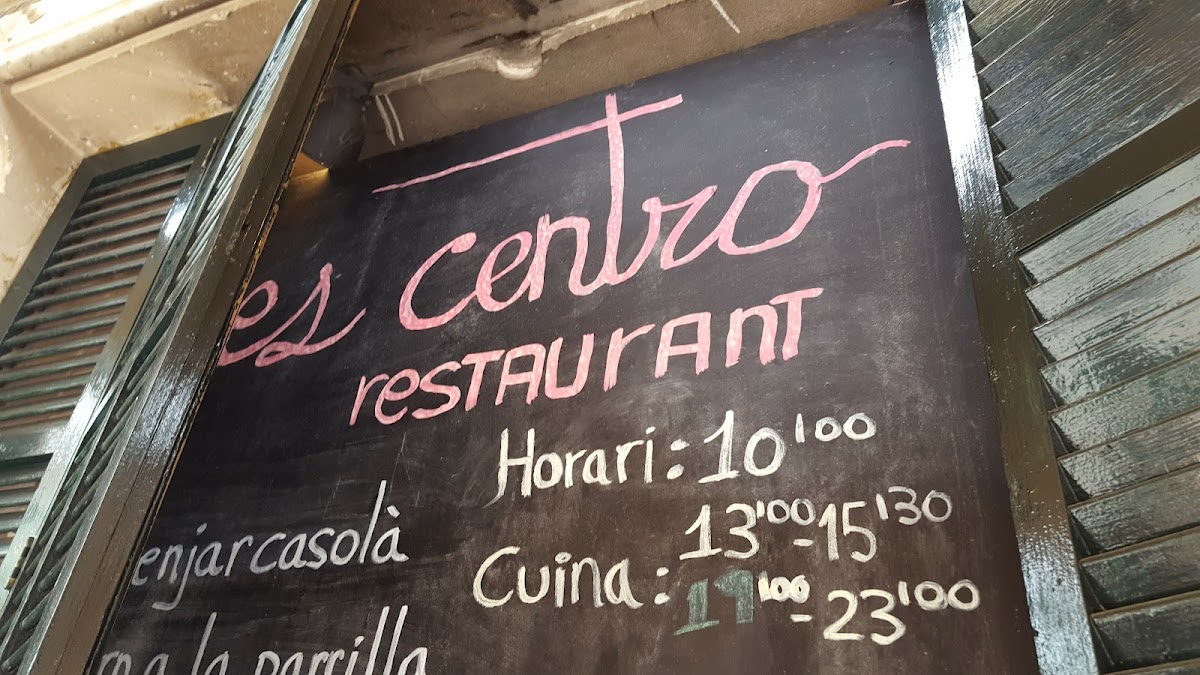 es centro
restaurant
Horari: 10'00
13'00-15'30
Cuina: 19'00-23'00
enjar casolà
a la parrilla